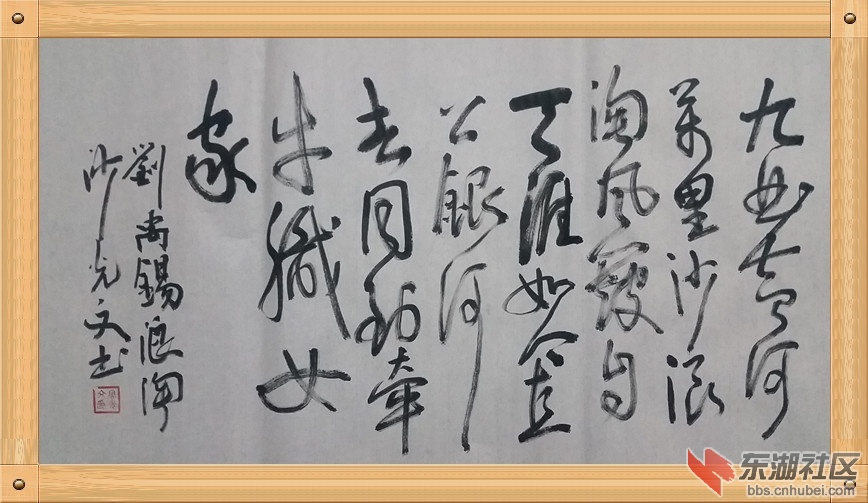 九曲黄河
萬里沙浪
淘風簸自
天涯如今直
上銀河
去同到牽
牛織女
家
劉禹錫浪淘
沙光文书
东湖社区
bbs.cnhubei.com